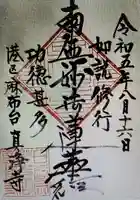 令和五年八月十六日
如説修行
南無妙法蓮華経
功徳甚多
港区麻布台真浄寺